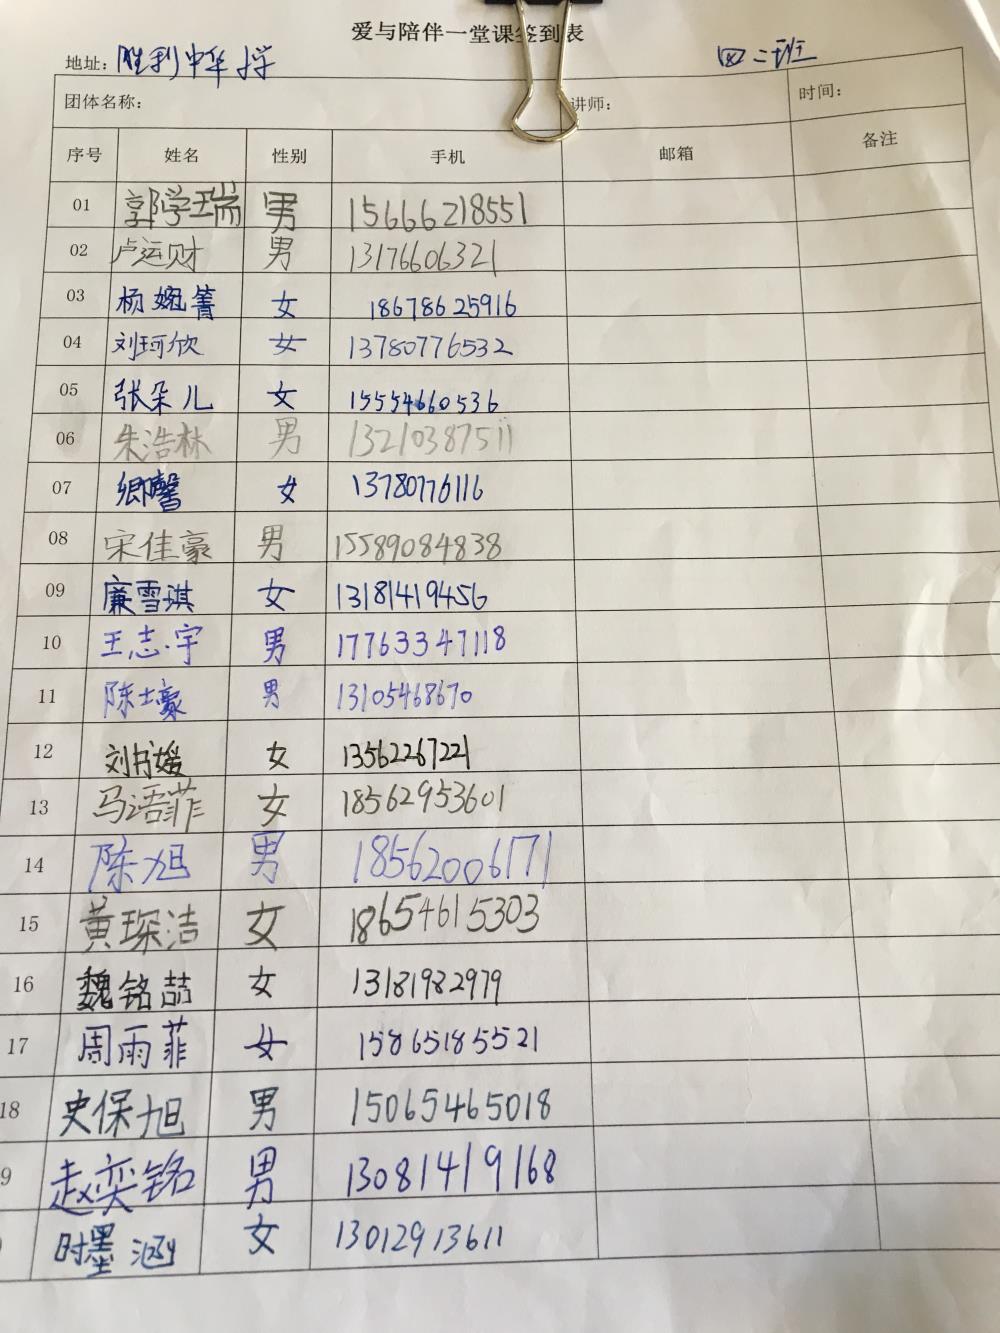 爱与陪伴一堂课签到表
地址: 胜利中华小学 四二班
团体名称: 讲师: 时间:
序号 姓名 性别 手机 邮箱 备注
01 郭学瑞 男 15666218551
02 卢运财 男 13176606321
03 杨婉箐 女 18678625916
04 刘珂欣 女 13780776532
05 张朵儿 女 15554660536
06 朱浩林 男 13210387511
07 馨 女 13780776116
08 宋佳豪 男 15589084838
09 廉雪琪 女 13181419456
10 王志宇 男 17763347118
11 陈士豪 男 13105468670
12 刘书媛 女 13562267221
13 马语菲 女 18562953601
14 陈旭 男 18562006171
15 黄琛洁 女 18654615303
16 魏铭喆 女 13181982979
17 周雨菲 女 15865185521
18 史保旭 男 15065465018
9 赵奕铭 男 13081419168
时墨涵 女 13012913611